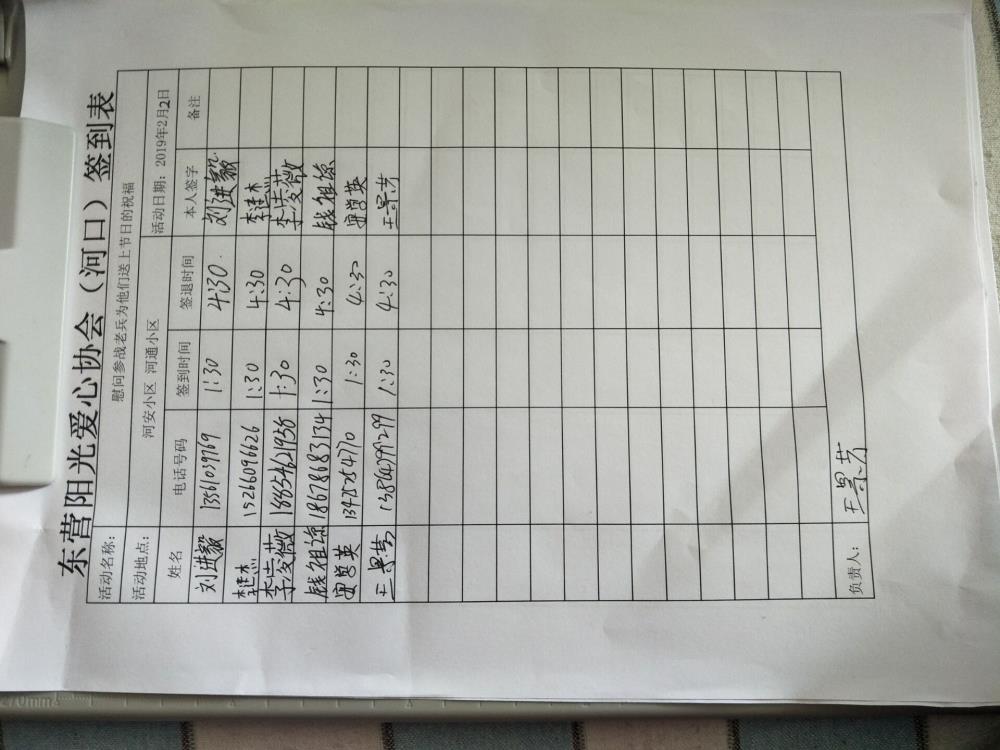 东营阳光爱心协会（河口）签到表
活动名称： 慰问参战老兵为他们送上节日的祝福
活动地点： 河安小区 河通小区 活动日期：2019年2月2日
姓名 电话号码 签到时间 签退时间 本人签字 备注
刘进毅 13561039769 1:30 4:30 刘进毅
李建杰 15266096626 1:30 4:30 李建杰
李凌薇 18854621958 1:30 4:30 李凌薇
钱祖琼 18678683134 1:30 4:30 钱祖琼
1:30 4:30
王景芳 1:30 4:30 王景芳
负责人： 王景芳
270mm